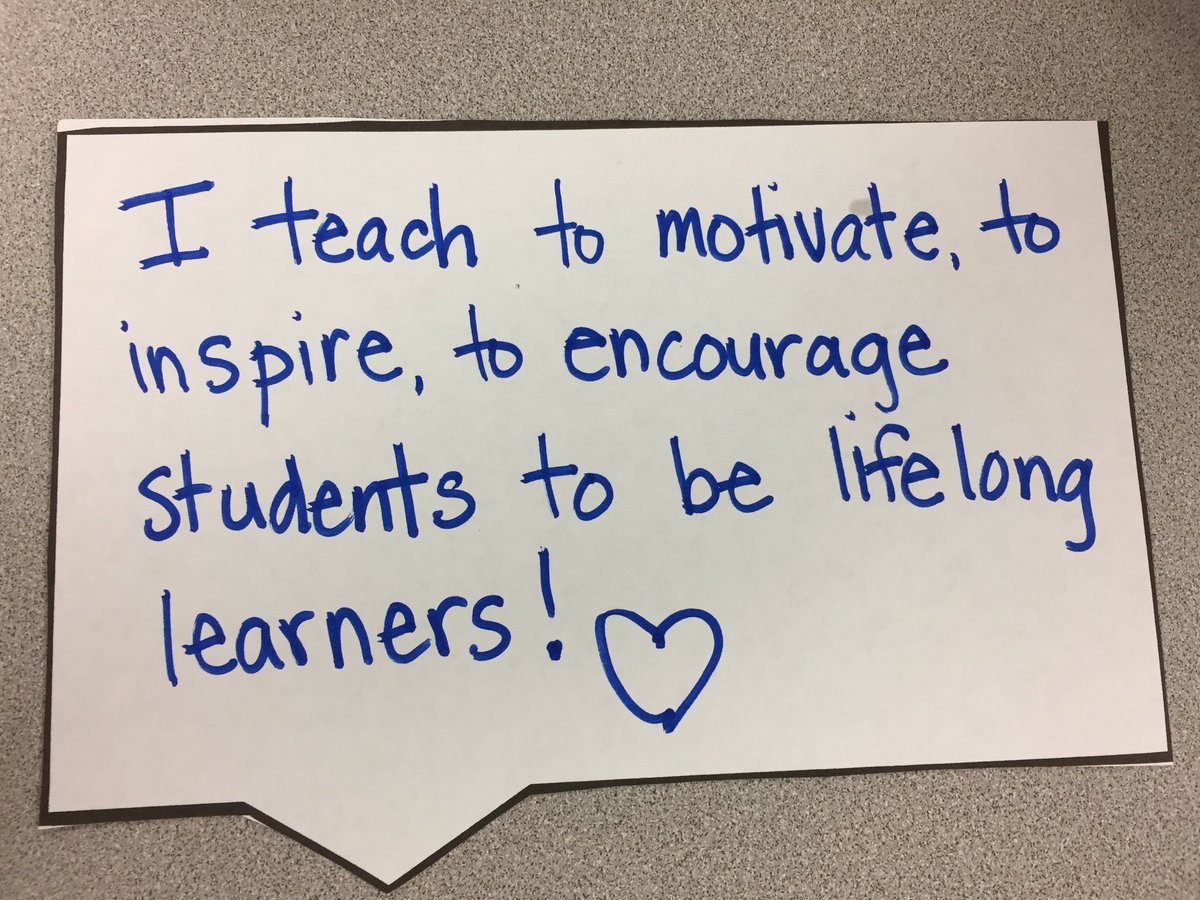 I teach to motivate, to
inspire, to encourage
students to be lifelong
learners!